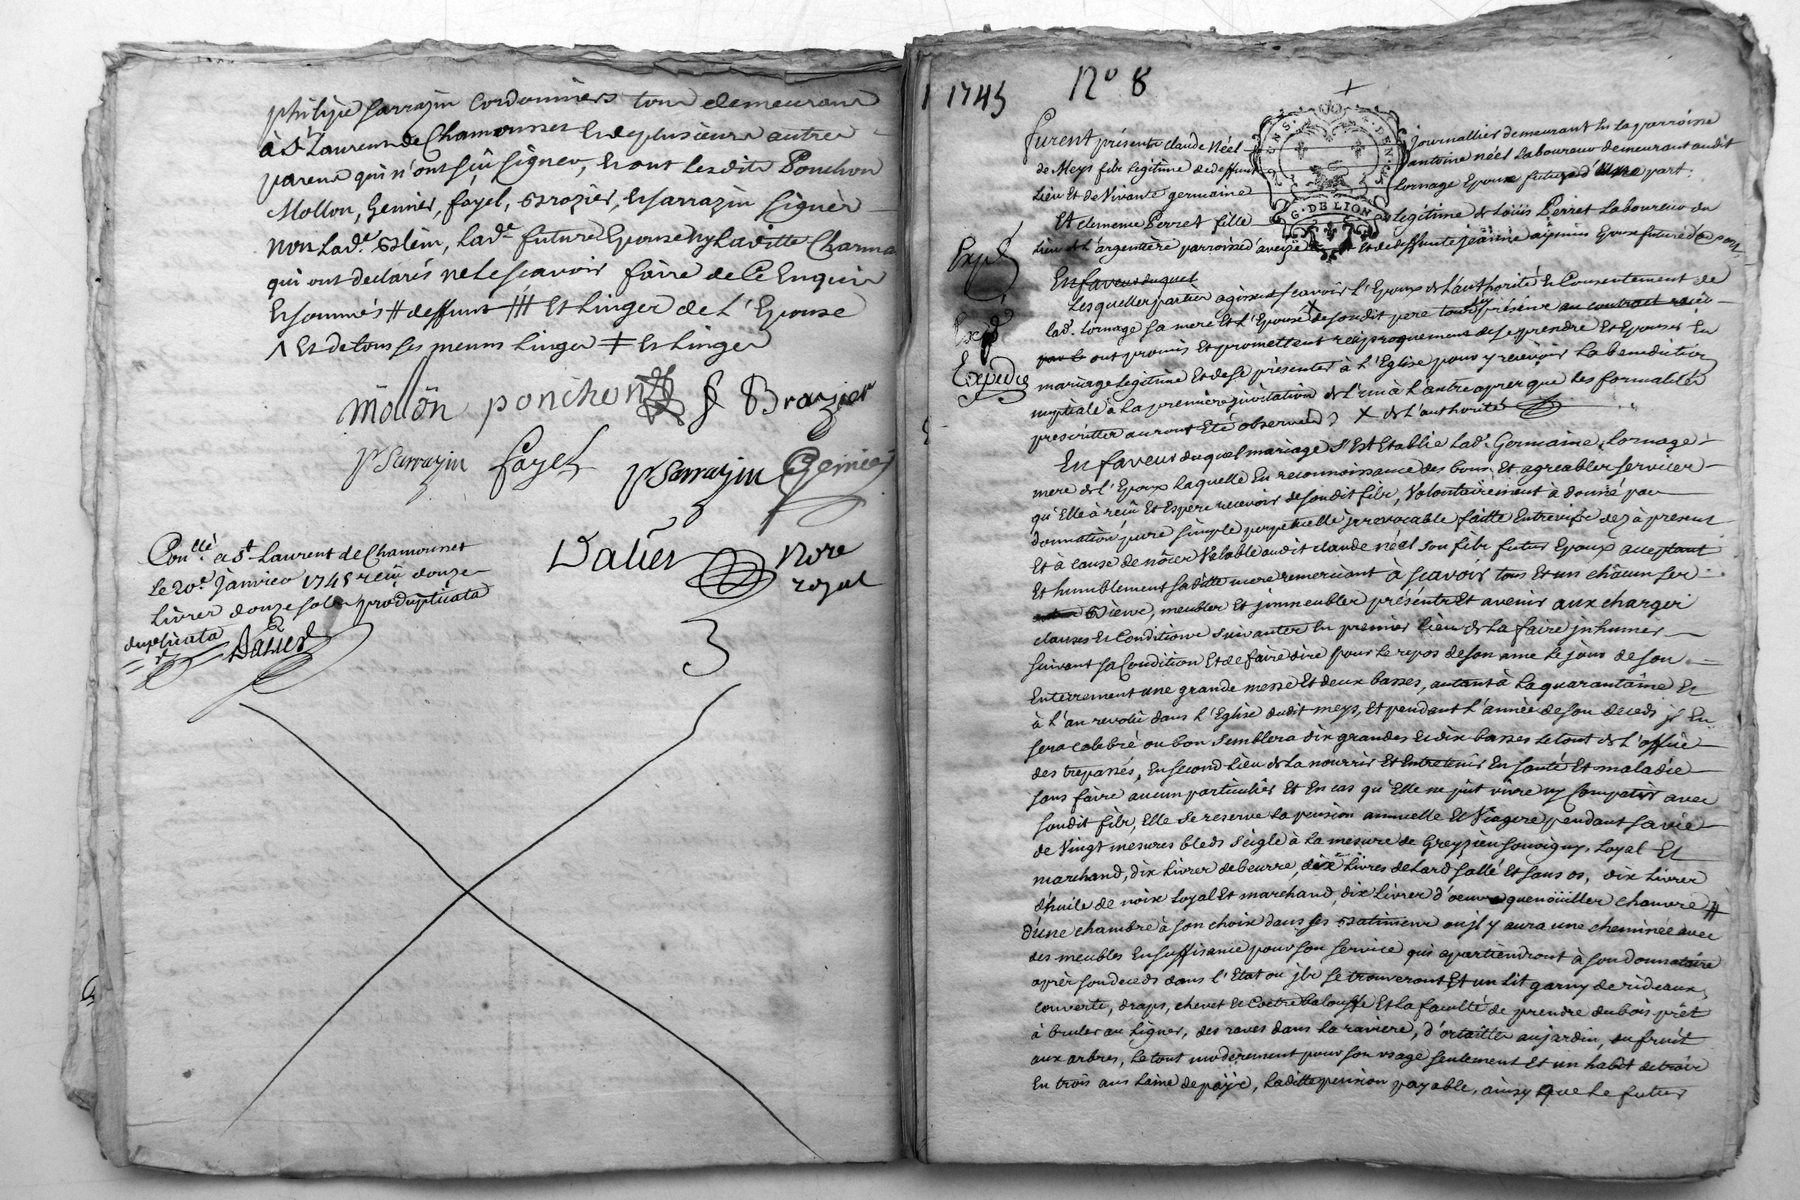 philipe Sarrazin Cordonniers tous demeurant
à St Laurent de Chamousset Et de plusieurs autres
parens qui n'ont sçû signer, Et ont lesdits Ponchon
Mollon, Genier, fayel, Brazier, Et Sarrazin Signés
non lad.e future Epouse ny laditte Charma
qui ont declarés ne le scavoir faire de Ce Enquis
Et sommés # deffunt ## Et linger de L'Epouse
Λ Et de tous ses menus linges ‡ Et linger
môllôn ponchon Brazier
pSarrazin fayel pSarrazin Genier
Dalier Nore
royal
Con.llé a St Laurent de Chamousset
Le 20.e janvier 1745 reçû douze
Livres douze sols pro duplicata
duplicata Dalier
3
1745 N° 8
G. DE LION
furent présents claude Néel journallier demeurant En la parroisse
de Meys fils Legitime de deffunt antoine néel Laboureur demeurant audit
Lieu Et de Vivante germaine Lornage Epoux futur d'une part.
Et clemence Perret fille Legitime de Loüis Perret Laboureur du
Lieu de L'argentiere parroisse d'aveize Et de deffunte jeanne Epouse future d'a part
Exp.é
En faveur duquel
Lesquelles parties agissent scavoir L'Epoux de L'authorité Et Consentement de
lad. Lornage sa mere Et L'Epouse X de sondit pere tous présens au contract
Exp.é
ont promis Et promettent reciproquement de se prendre Et Epouser En
Expedié
mariage legitime Et de se présenter à L'Eglise pour y recevoir La benediction
nuptiale à La premiere invitation de L'un à L'autre apres que les formalités
prescrittes auront Eté observées X de L'authorité
En faveur duquel mariage s'est Etablie Lad. Germaine Lornage
mere de L'Epoux laquelle En reconnoissance des bons Et agreables services
qu'Elle à reçû Et Espere recevoir de sondit fils, Volontairement à donné par
donnation pure simple perpetuelle jrrevocable faitte Entrevifs dez à present
Et à cause de nôces Valable audit claude néel son fils futur Epoux acceptant
Et humblement saditte mere remerciant à scavoir tous Et un châcun ses
Biens, meubles Et jmmeubles présents Et avenir aux charges
clauses Et Conditions suivantes En premier lieu de La faire jnhumer
suivant sa Condition Et de faire dire pour Le repos de son ame Le jour de son
Enterrement une grande messe Et deux basses, autant à La quarantaine Et
à L'an revolû dans L'Eglise dudit meys, Et pendant L'année de son deceds jl En
sera celebré ou bon semblera dix grandes Et dix basses Le tout de L'office
des trepassés, En second Lieu de La nourrir Et Entretenir En santé Et maladie
sans faire aucun particulier Et En cas qu'Elle ne pût vivre ny Compatir avec
sondit fils, Elle se reserve La pension annuelle Et Viagere pendant sa vie
de Vingt mesures bleds seigle à La mesure de Greyzieu souvigny, Loyal Et
marchand, dix Livres de beurre, dix Livres de Lard sallé Et sans os, dix Livres
d'huile de noix Loyal Et marchand, dix Livres d'oeuvre quenoüilles chanvre #
d'une chambre à son choix dans ses Batiments ou jl y aura une cheminée avec
des meubles En suffisance pour son service qui apartiendront à son donnataire
aprés son deceds dans L'Etat ou jls se trouveront Et un Lit garny de rideaux,
couverte, draps, chevet Et Coetre balouffe Et La faculté de prendre du bois prêt
à bruler au Ligner, des raves dans La raviere, d'ortailles au jardin, du fruit
aux arbres, Le tout modérement pour son usage seulement Et un habit de trois
En trois ans Laine de païs, Laditte pension payable, ainsy que Le futur